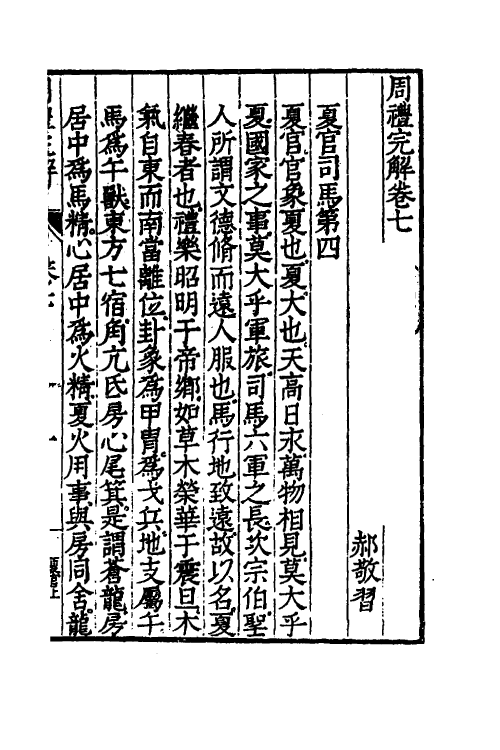 周禮完解卷七
郝敬習
夏官司馬第四
夏官官象夏也夏大也天高日永萬物相見莫大乎
夏國家之事莫大乎軍旅司馬六軍之長次宗伯聖
人所謂文德脩而遠人服也馬行地致遠故以名夏
繼春者也禮樂昭明于帝鄉如草木榮華于震旦木
氣自東而南當離位卦象為甲冑為戈兵地支屬午
馬為午獸東方七宿角亢氐房心尾箕是謂蒼龍房
居中為馬精心居中為火精夏火用事與房同舍龍